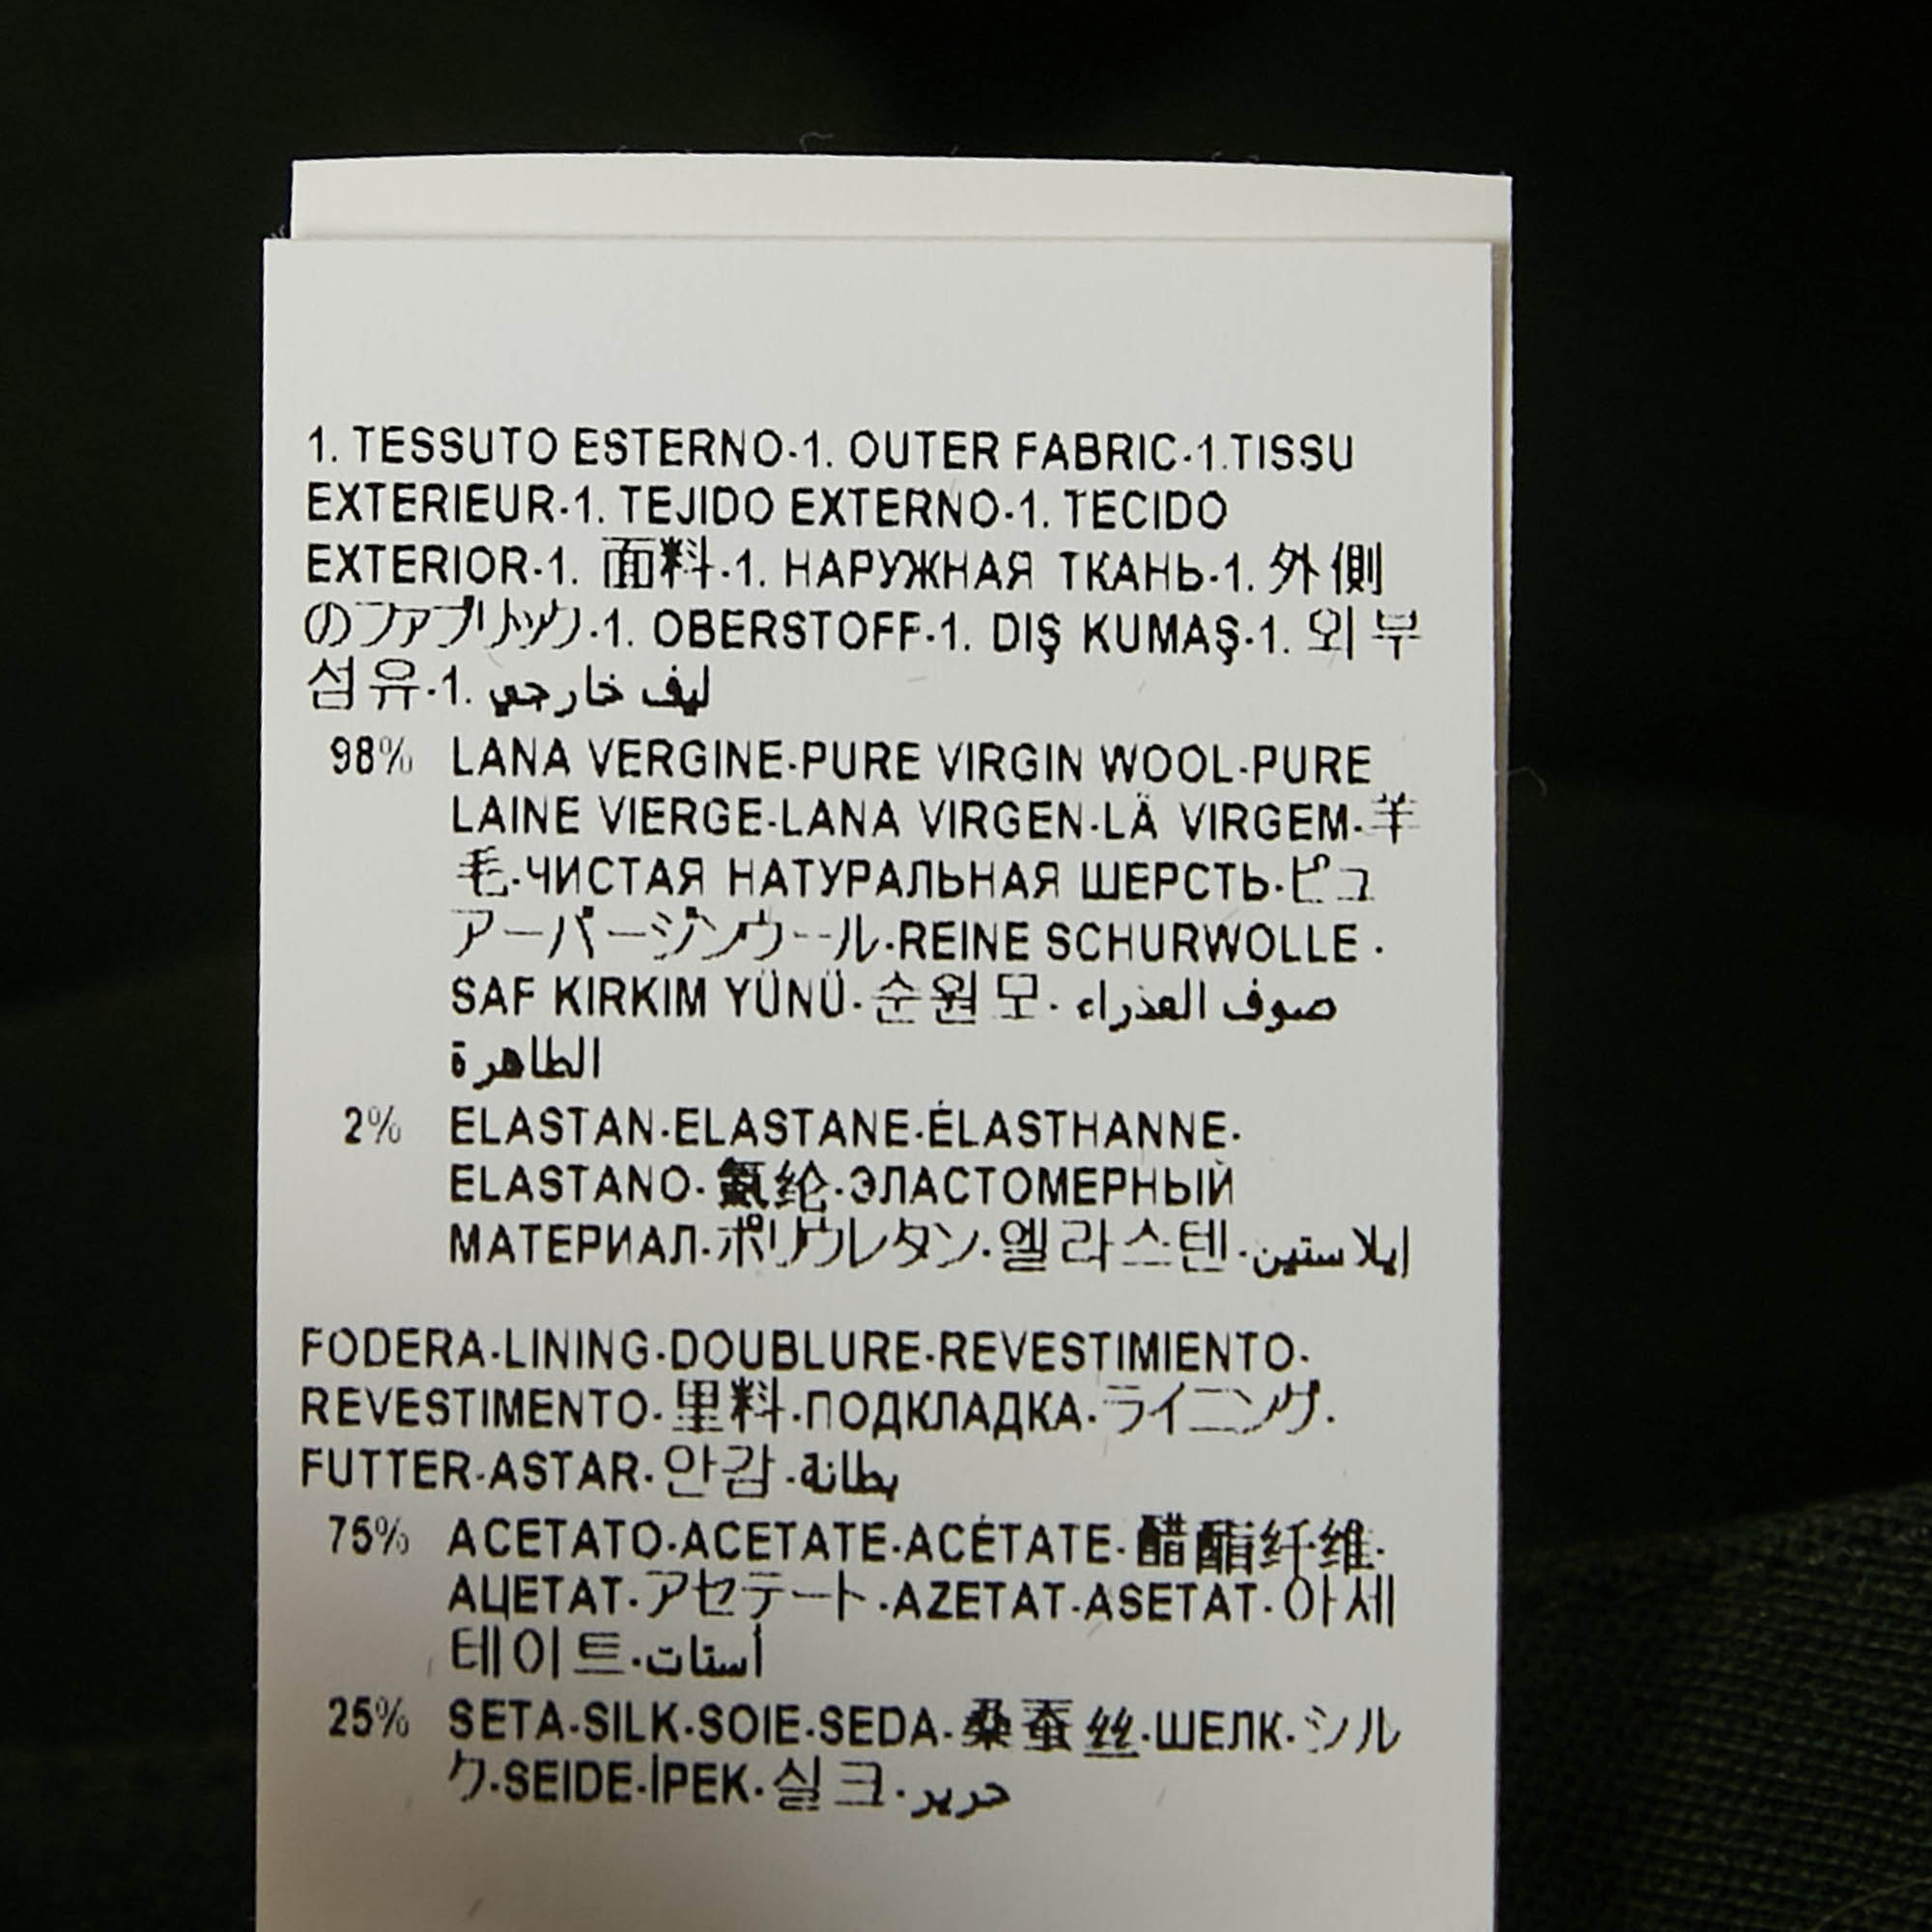 1. TESSUTO ESTERNO-1. OUTER FABRIC-1.TISSU
EXTERIEUR-1. TEJIDO EXTERNO-1. TECIDO
EXTERIOR-1. 面料-1. НАРУЖНАЯ ТКАНЬ-1. 外側
のファブリック-1. OBERSTOFF-1. DIŞ KUMAŞ-1. 외부
섬유-1. ليف خارجي
98% LANA VERGINE-PURE VIRGIN WOOL-PURE
LAINE VIERGE-LANA VIRGEN-LÃ VIRGEM-羊
毛-ЧИСТАЯ НАТУРАЛЬНАЯ ШЕРСТЬ-ピュ
アーバージンウール-REINE SCHURWOLLE -
SAF KIRKIM YÜNÜ-순원모- صوف العذراء
الطاهرة
2% ELASTAN-ELASTANE-ÉLASTHANNE-
ELASTANO-氨纶-ЭЛАСТОМЕРНЫЙ
МАТЕРИАЛ-ポリウレタン-엘라스텐-إيلاستين
FODERA-LINING-DOUBLURE-REVESTIMIENTO-
REVESTIMENTO-里料-ПОДКЛАДКА-ライニング-
FUTTER-ASTAR-안감-بطانة
75% ACETATO-ACETATE-ACÉTATE-醋酯纤维-
АЦЕТАТ-アセテート-AZETAT-ASETAT-아세
테이트-أستات
25% SETA-SILK-SOIE-SEDA-桑蚕丝-ШЕЛК-シル
ク-SEIDE-İPEK-실크-حرير